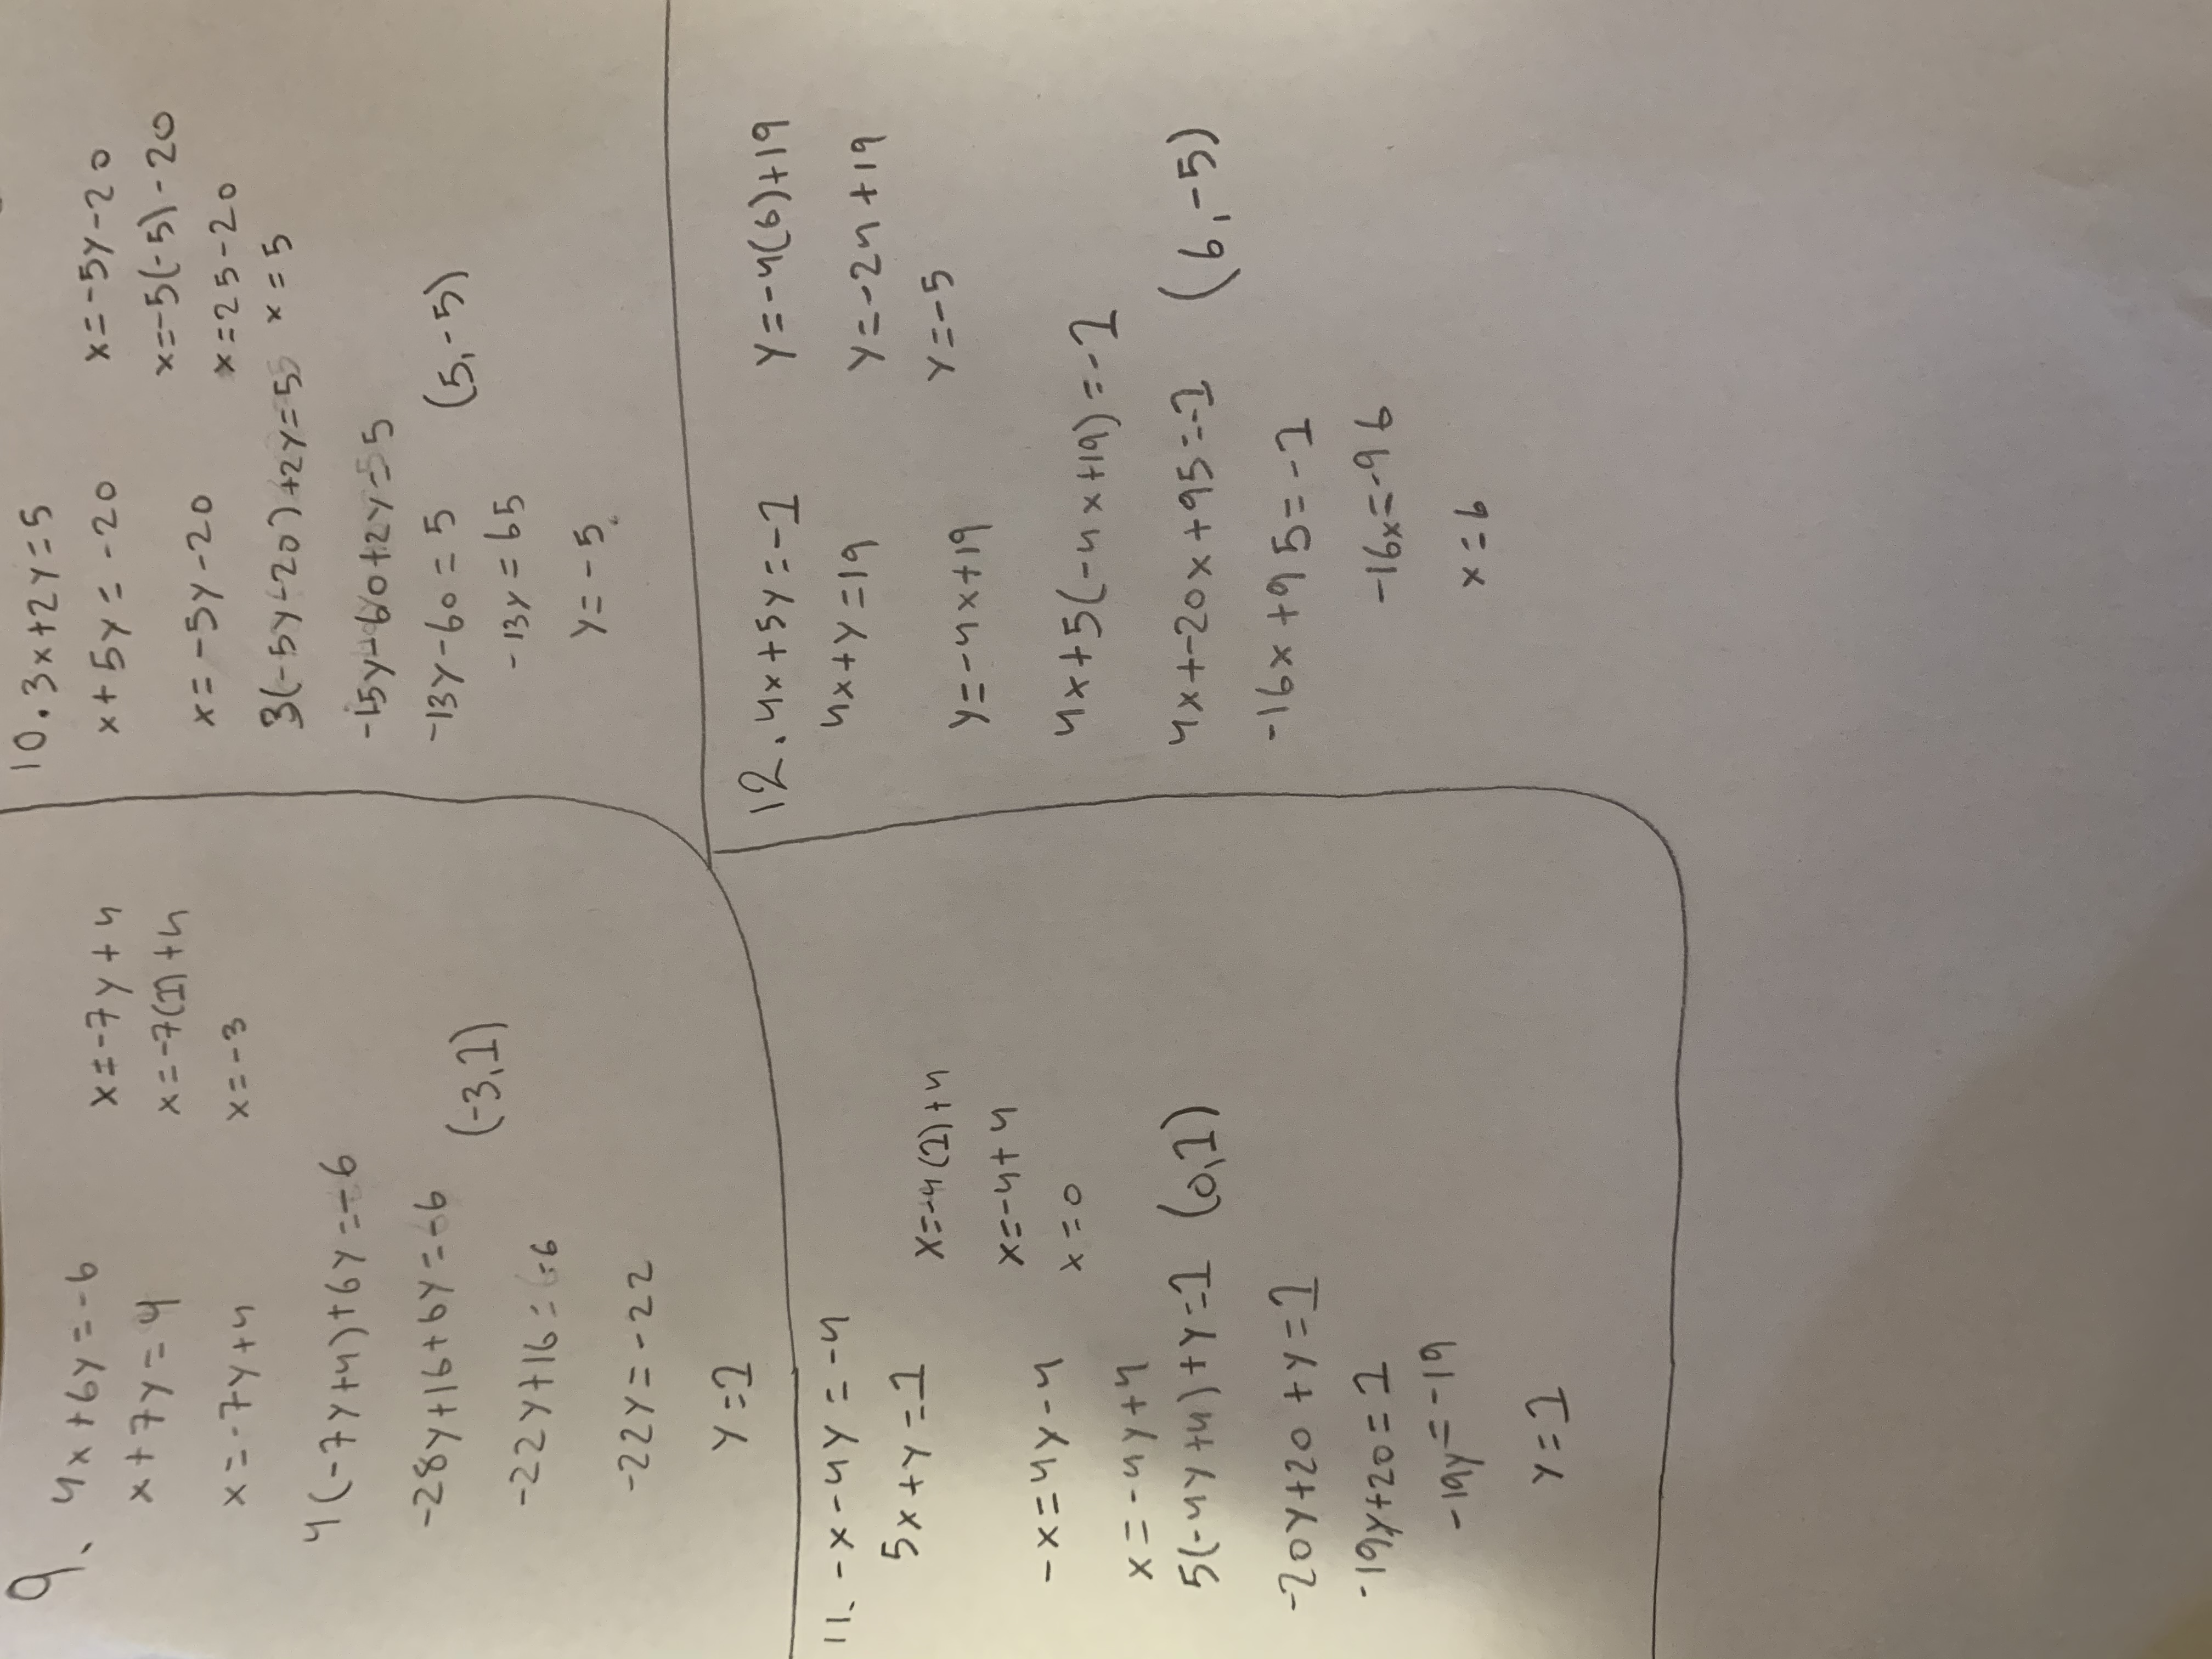 9. 4x+6y=-6
x+7y=4
x=-7y+4
4(-7y+4)+6y=-6
-28y+16+6y=-6
-22y+16=-6
-22y=-22
y=1
x=-7y+4
x=-7(1)+4
x=-3
(-3,1)
10. 3x+2y=5
x+5y=-20
x=-5y-20
3(-5y-20)+2y=5
-15y-60+2y=5
-13y-60=5
-13y=65
y=-5
x=-5y-20
x=-5(-5)-20
x=25-20
x=5
(5,-5)
11. -x-4y=-4
5x+y=1
-x=4y-4
x=-4y+4
5(-4y+4)+y=1
-20y+20+y=1
-19y+20=1
-19y=-19
y=1
x=-4(1)+4
x=-4+4
x=0
(0,1)
12. 4x+5y=-1
4x+y=19
y=-4x+19
4x+5(-4x+19)=-1
4x+-20x+95=-1
-16x+95=-1
-16x=-96
x=6
y=-4(6)+19
y=-24+19
y=-5
(6,-5)